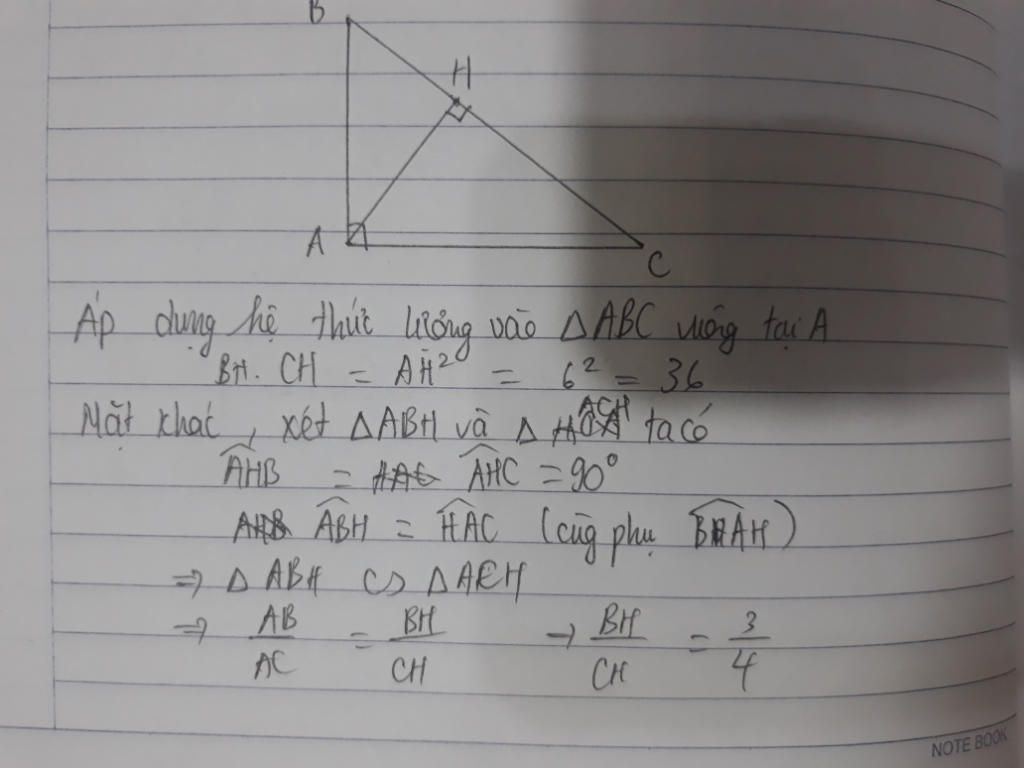 B
H
A
C
Áp dụng hệ thức lượng vào △ABC vuông tại A
BH. CH = AH² = 6² = 36
Mặt khác, xét △ABH và △ ACH ta có
AHB = AHC = 90°
ABH = HAC (cùng phụ BAH)
⇒ △ ABH ∽ △ACH
⇒ AB/AC = BH/CH → BH/CH = 3/4
NOTE BOOK